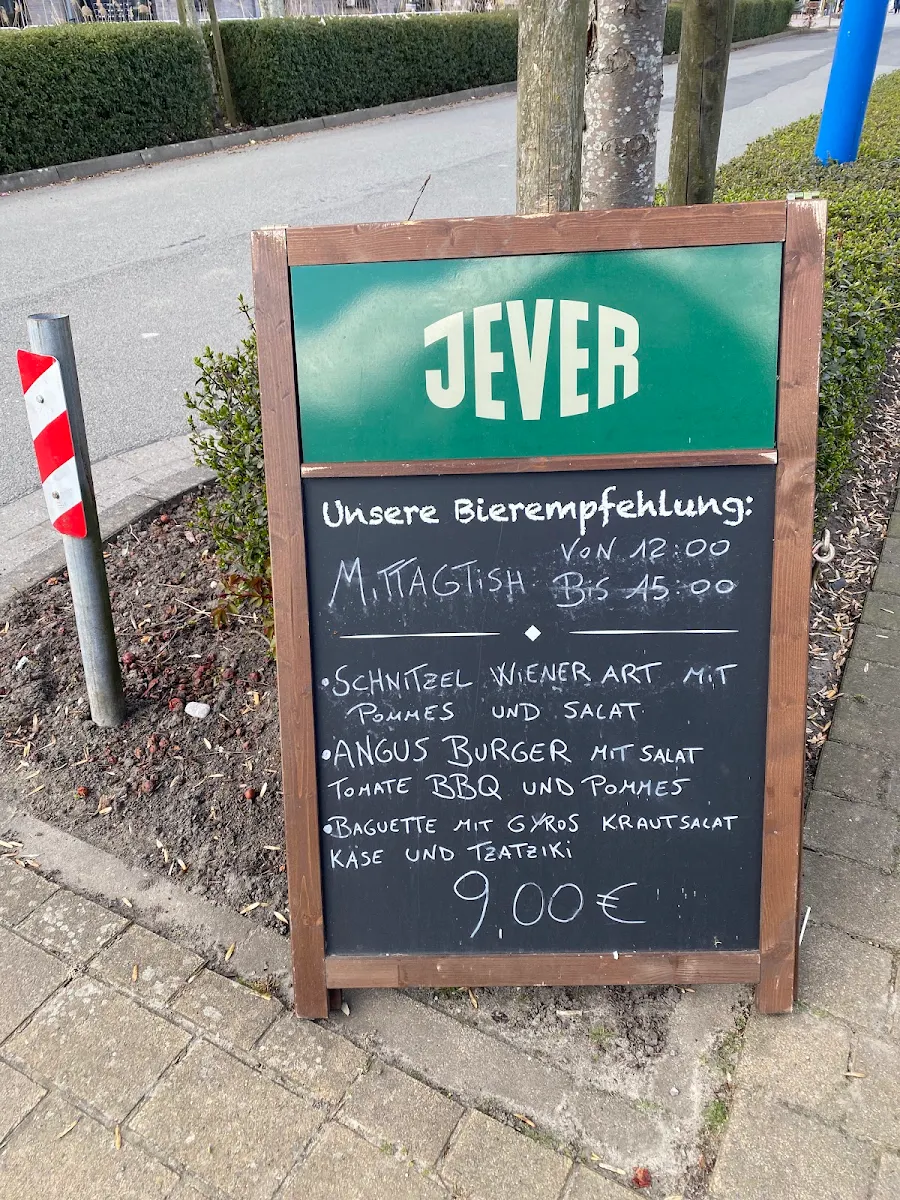 JEVER
Unsere Bierempfehlung:
MITTAGTISH VON 12:00
BIS 15:00
•SCHNITZEL WIENER ART MIT
POMMES UND SALAT
•ANGUS BURGER MIT SALAT
TOMATE BBQ UND POMMES
•BAGUETTE MIT GYROS KRAUTSALAT
KÄSE UND TZATZIKI
9,00€